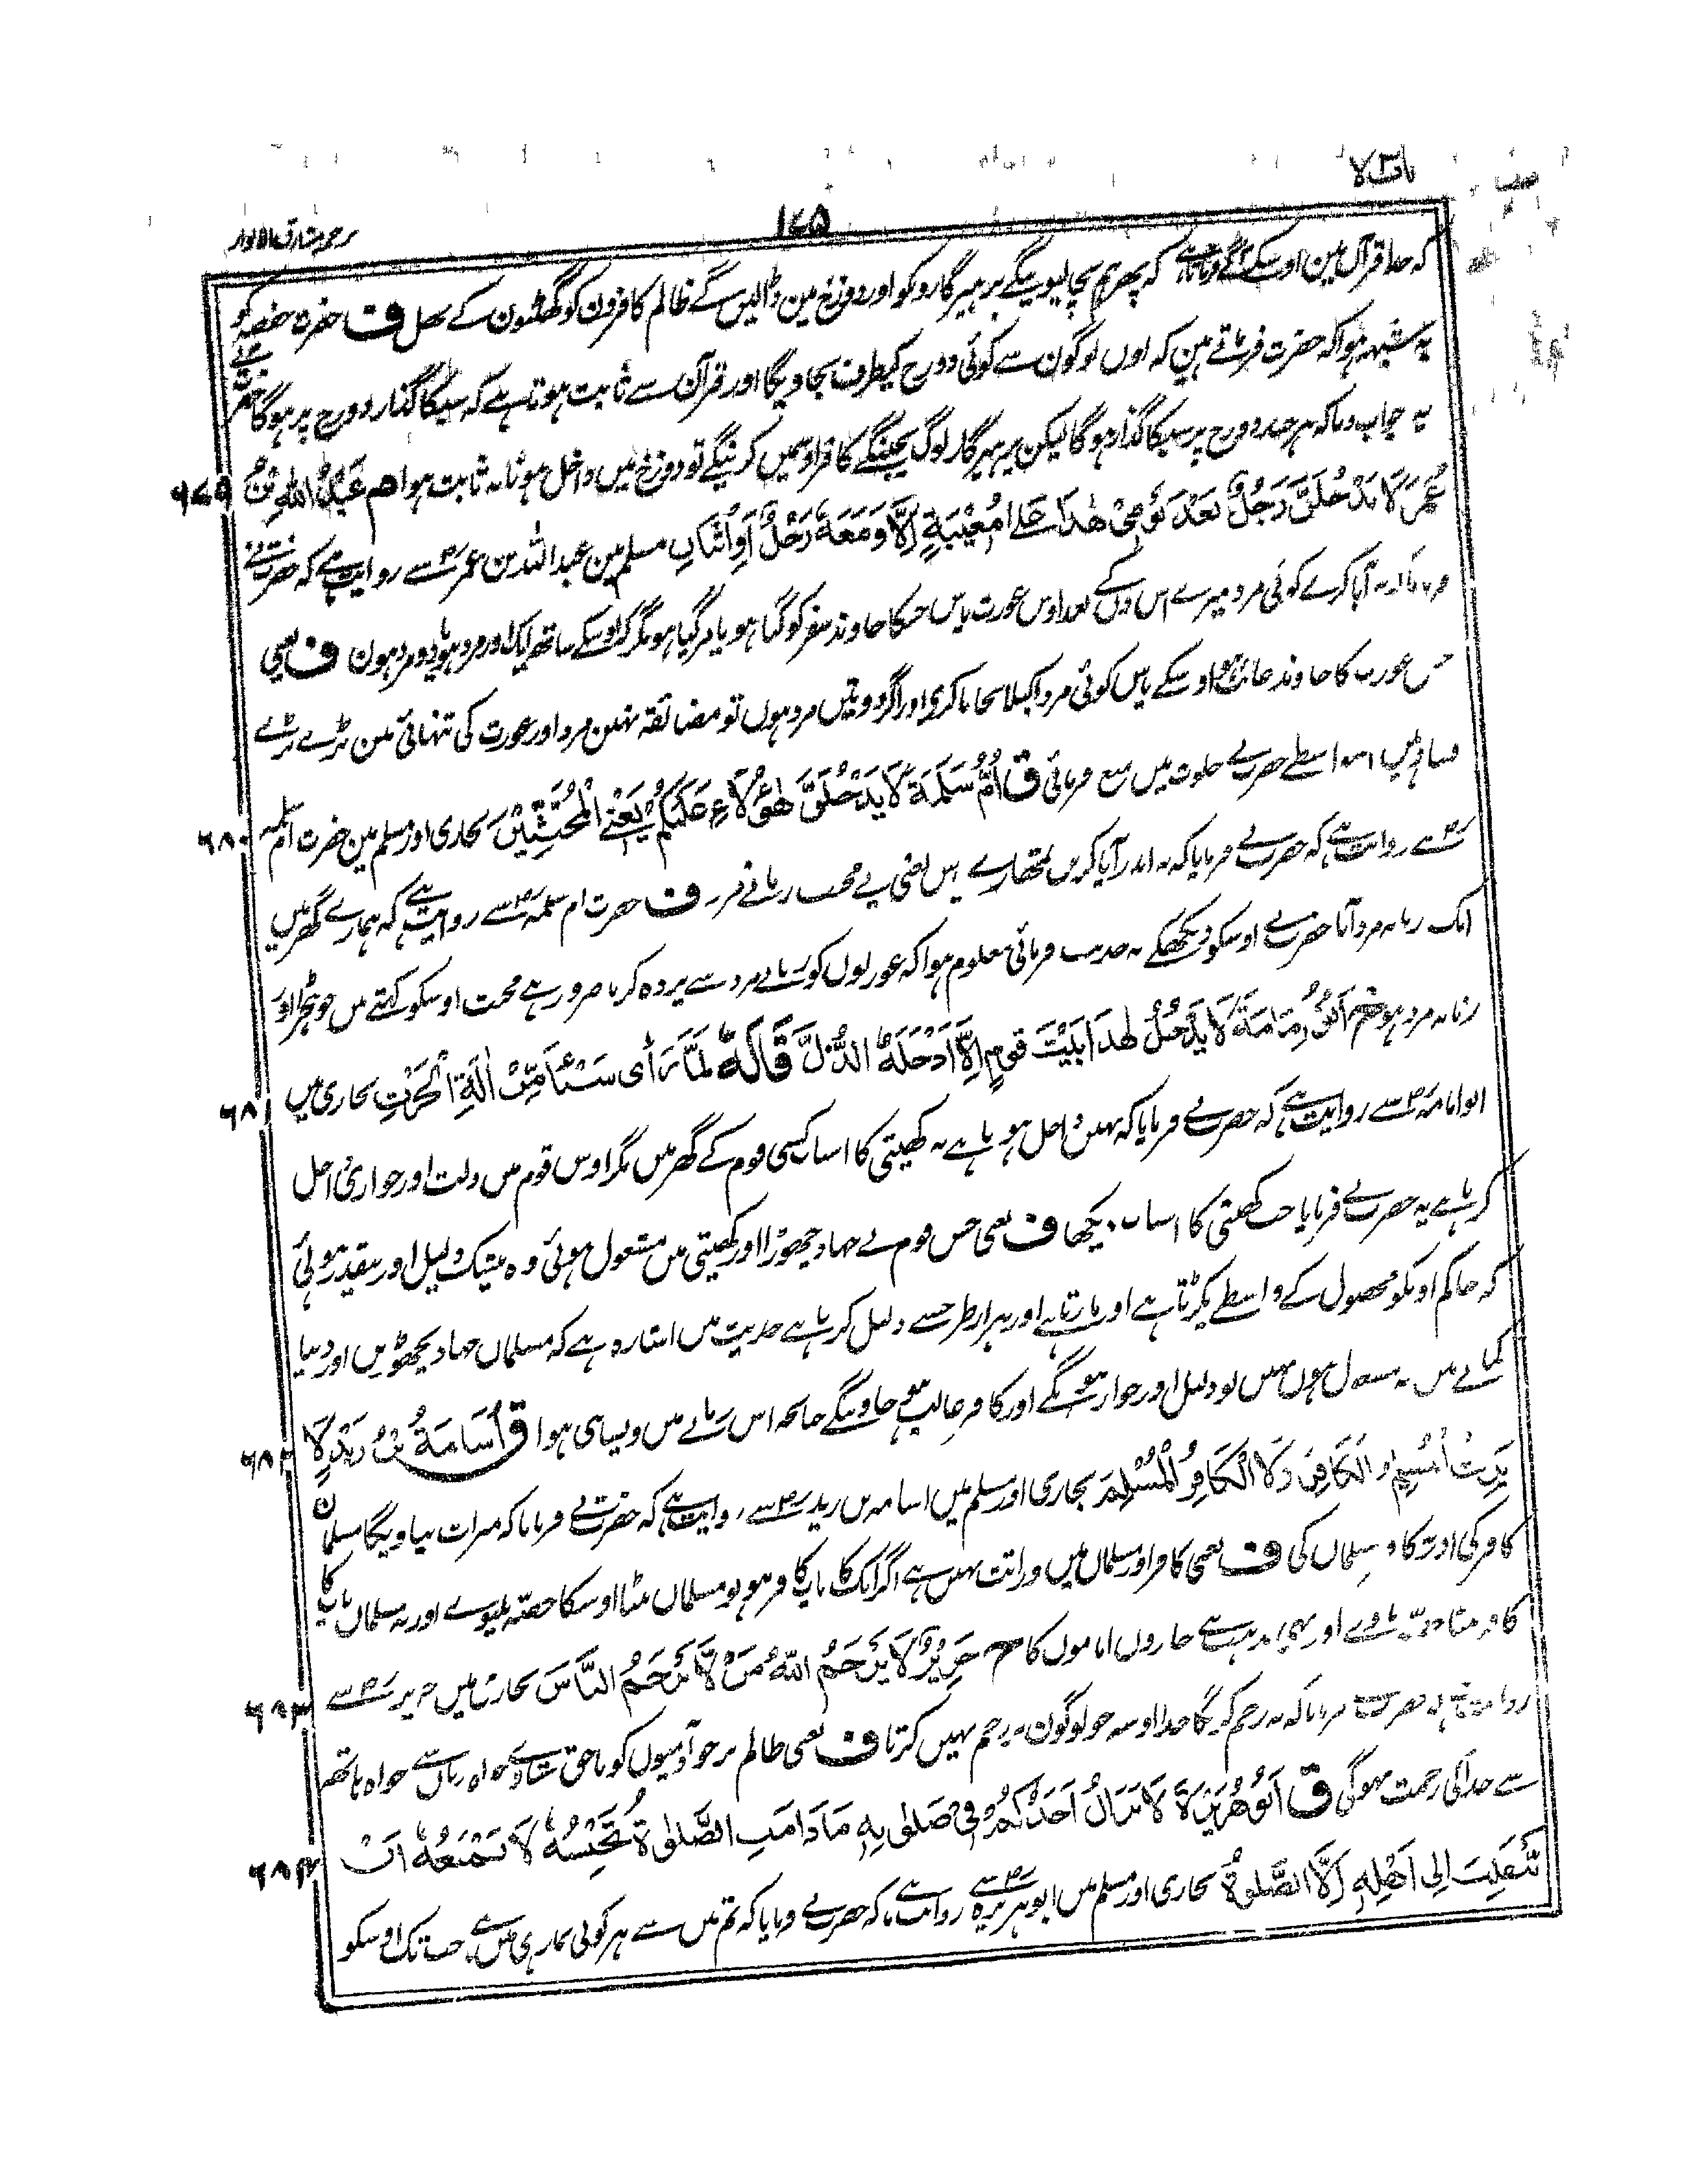 باب لا
۱۷۵
ترجمہ مشارق الانوار
کہ خدا قرآن مین اوسکے آگے فرماتا ہے کہ پھر ہم بچا لیوینگے پرہیزگارونکو اور دوزخ مین ڈالیں گے ظالم کافرون کو گھٹنون کے بھل ف حضرت حفصہ کو
یہ شبہہ ہوا کہ حضرت فرماتے ہین کہ اون لوگون سے کوئی دوزخ کیطرف نجاویگا اور قرآن سے ثابت ہوتا ہے کہ سبکا گذار دوزخ پر ہوگا حضرت نے
یہ جواب دیا کہ ہر چند دوزخ پر سبکا گذار ہوگا لیکن پرہیزگار لوگ بچینگے کافر اوسمیں گرینگے تو دوزخ میں داخل ہونا نہ ثابت ہوا ھم عَبْدُ اللّٰهِ بْنُ
۶۷۹
عُمَرَ لَا يَدْخُلَنَّ رَجُلٌ بَعْدَ يَوْمِيْ هٰذَا عَلٰى مُغِيْبَةٍ إِلَّا وَمَعَهٗ رَجُلٌ أَوِ اثْنَانِ مسلم مین عبد اللہ بن عمر رض سے روایت ہے کہ حضرت نے
فرمایا نہ آیا کرے کوئی مرد میرے اس دن کے بعد اوس عورت پاس جسکا خاوند سفر کو گیا ہو یا مر گیا ہو مگر کہ اوسکے ساتھ ایک اور مرد ہو یا دو مرد ہون ف یعنی
جس عورت کا خاوند غائب ہو اوسکے پاس کوئی مرد اکیلا نجایا کری اور اگر دو تین مرد ہوں تو مضائقہ نہین مرد اور عورت کی تنہائی مین بڑے بڑے
فساد ہیں اسواسطے حضرت نے خلوت میں منع فرمائی ق أُمُّ سَلَمَةَ لَا يَدْخُلَنَّ هٰؤُلَاءِ عَلَيْكُمْ يَعْنِي الْمُخَنَّثِيْنَ بخاری اور مسلم مین حضرت ام سلمہ
۶۸۰
رض سے روایت ہے کہ حضرت نے فرمایا کہ نہ اندر آیا کریں تمھارے پاس یعنی یے مخنث زنانے مرد ف حضرت ام سلمہ رض سے روایت ہے کہ ہمارے گھر میں
ایک زنانہ مرد آیا حضرت نے اوسکو دیکھکے یہ حدیث فرمائی معلوم ہوا کہ عورتوں کو زنانے مرد سے پردہ کرنا ضرور ہے مخنث اوسکو کہتے ہیں جو ہیجڑا اور
زنانہ مرد ہو خم أَبُو أُمَامَةَ لَا يَدْخُلُ هٰذَا بَيْتَ قَوْمٍ إِلَّا أَدْخَلَهُ الذُّلَّ قَالَهٗ لَمَّا رَأٰى شَيْئًا مِّنْ اٰلَةِ الْحَرْثِ بخاری میں
۶۸۱
ابو امامہ رض سے روایت ہے کہ حضرت نے فرمایا کہ نہیں داخل ہوتا ہے یہ کھیتی کا اسباب کسی قوم کے گھر میں مگر اوس قوم میں ذلت اور خواری داخل
کرتا ہے یہ حضرت نے فرمایا جب کھیتی کا اسباب دیکھا ف یعنی جس قوم نے جہاد چھوڑا اور کھیتی میں مشغول ہوئی وہ بیشک ذلیل اور بیقدر ہوئی
کہ حاکم اونکو محصول کے واسطے پکڑتا ہے اور مارتا ہے اور ہزار طرح سے ذلیل کرتا ہے حدیث میں اشارہ ہے کہ مسلمان جہاد نچھوڑیں اور دنیا
کمانے میں نہ مشغول ہوں نہیں تو ذلیل اور خوار ہونگے اور کافر غالب ہو جاوینگے چنانچہ اس زمانے میں ویسا ہی ہوا ق أُسَامَةُ بْنُ زَيْدٍ لَا
۶۸۲
يَرِثُ الْمُسْلِمُ الْكَافِرَ وَلَا الْكَافِرُ الْمُسْلِمَ بخاری اور مسلم میں اسامہ بن زید رض سے روایت ہے کہ حضرت نے فرمایا کہ میراث نپاویگا مسلمان
کافر کی اور نہ کافر مسلمان کی ف یعنی کافر اور مسلمان میں وراثت نہیں ہے اگر ایک کا باپ کافر ہو تو مسلمان بیٹا اوسکا حصہ نلیوے اور نہ مسلمان باپ کا
کافر بیٹا حصہ پاوے اور یہی مذہب ہے چاروں اماموں کا خم جَرِيْرٌ لَا يَرْحَمُ اللّٰهُ مَنْ لَّا يَرْحَمُ النَّاسَ بخاری میں جریر رض سے
۶۸۳
روایت ہے کہ حضرت نے فرمایا کہ نہ رحم کریگا خدا اوسپر جو لوگون پر رحم نہیں کرتا ف یعنی ظالم پر جو آدمیوں کو ناحق ستاوے خواہ زبان سے خواہ ہاتھ
سے خدا کی رحمت نہوگی ق أَبُو هُرَيْرَةَ لَا يَزَالُ أَحَدُكُمْ فِي صَلٰوتِهٖ مَا دَامَتِ الصَّلٰوةُ تَحْبِسُهٗ لَا تَمْنَعُهٗ أَنْ
۶۸۴
يَّنْقَلِبَ إِلٰى أَهْلِهٖ إِلَّا الصَّلٰوةُ بخاری اور مسلم میں ابو ہریرہ رض سے روایت ہے کہ حضرت نے فرمایا کہ تم میں سے ہر کوئی نماز ہی میں ہے جب تک اوسکو